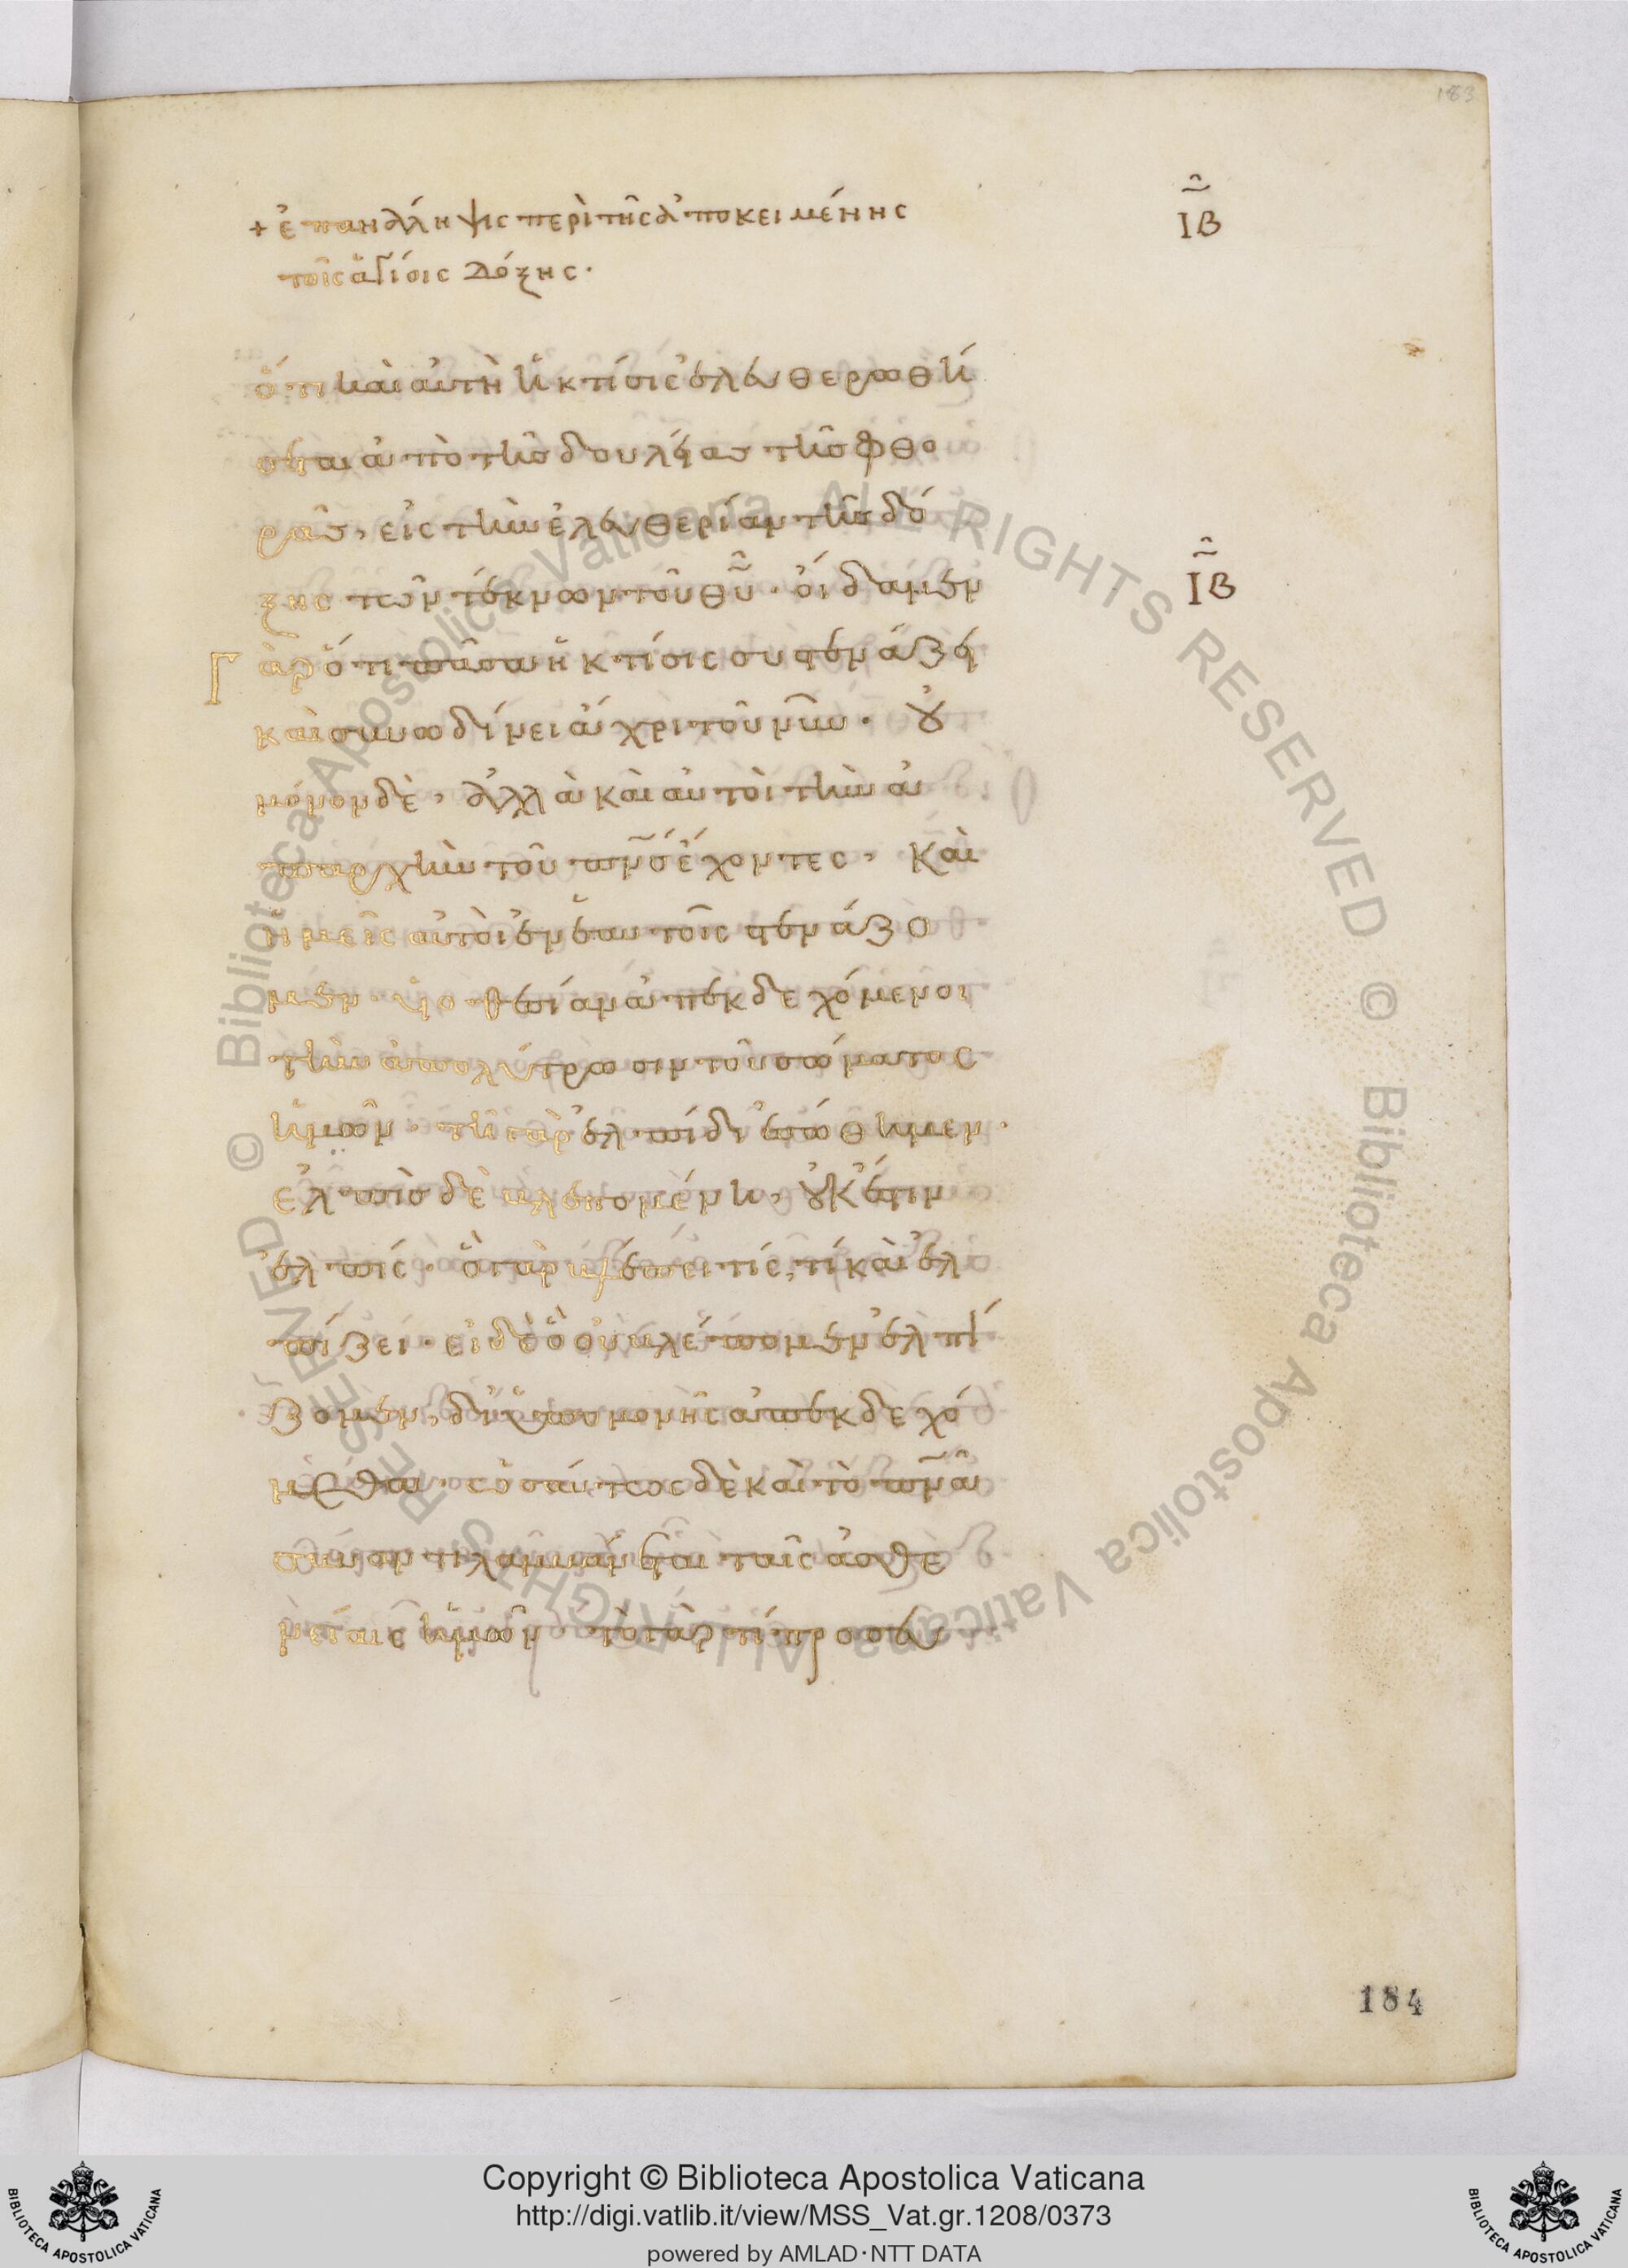 183
+ ἐπανάλληψις περὶ τῆς ἀποκειμένης
τοῖς ἁγίοις δόξης·
ΙΒ
ὅτι καὶ αὐτὴ ἡ κτίσις ἐλευθερωθή
σεται ἀπὸ τῆς δουλείας τῆς φθο
ρᾶς, εἰς τὴν ἐλευθερίαν τῆς δό
ξης τῶν τέκνων τοῦ θῦ· οἴδαμεν
ΙΒ
Γὰρ ὅτι πᾶσα ἡ κτίσις συστενάζει
καὶ συνωδίνει ἄχρι τοῦ νῦν· οὐ
μόνον δὲ, ἀλλὰ καὶ αὐτοὶ τὴν ἀ
παρχὴν τοῦ πνσ ἔχοντες, καὶ
ἡμεῖς αὐτοὶ ἐν ἑαυτοῖς στενάζο
μεν· υἱοθεσίαν ἀπεκδεχόμενοι
τὴν ἀπολύτρωσιν τοῦ σώματος
ἡμῶν· τῆ γὰρ ἐλπίδι ἐσώθημεν·
ἐλπὶς δὲ βλεπομένη, οὐκ έστιν
ἐλπίς· ὃ γὰρ βλέπει τίς, τί καὶ ἐλ
πίζει· εἰ δὲ ὃ οὐ βλέπομεν ἐλπί
ζομεν, δι' ὑπομονῆς ἀπεκδεχό
μεθα· ὡσαύτως δὲ καὶ τὸ πνᾶ
συναντιλαμβάνεται ταῖς ἀσθε
νείαις ἡμῶν· τὸ γὰρ τί προσευ
184
© Biblioteca Apostolica Vaticana ALL RIGHTS RESERVED © Biblioteca Apostolica Vaticana ALL RIGHTS RESERVED
BIBLIOTECA APOSTOLICA VATICANA
Copyright © Biblioteca Apostolica Vaticana
http://digi.vatlib.it/view/MSS_Vat.gr.1208/0373
powered by AMLAD·NTT DATA
BIBLIOTECA APOSTOLICA VATICANA